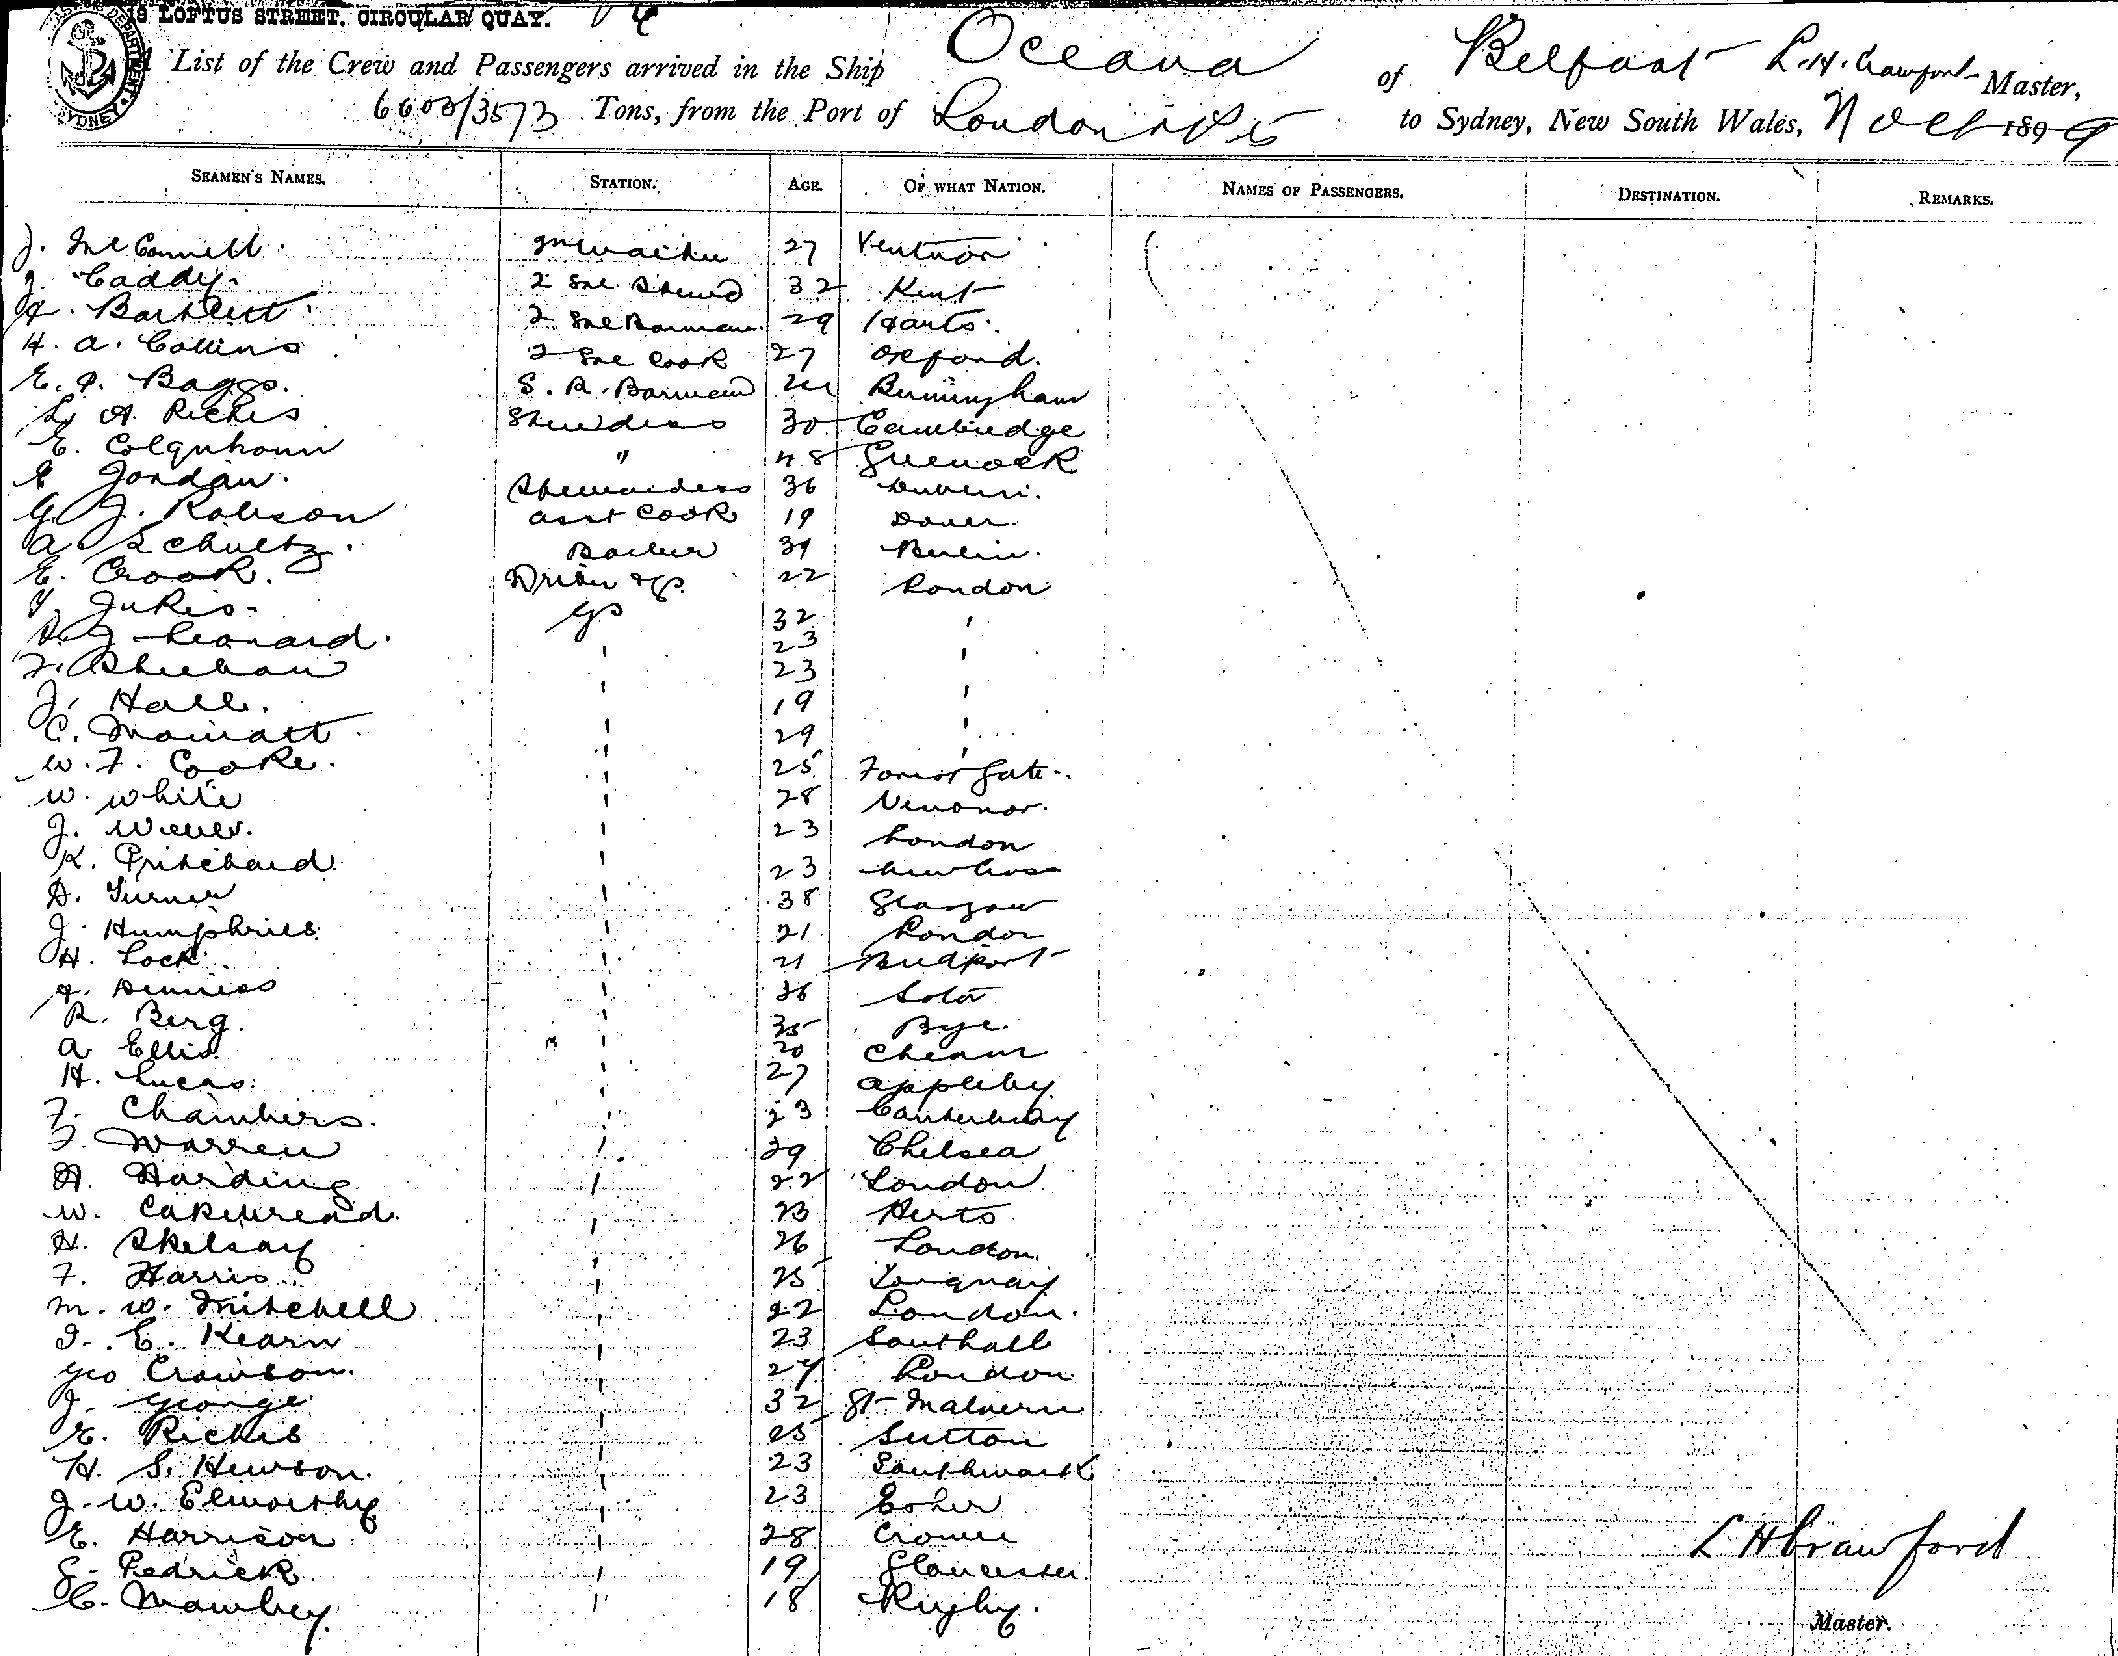 18 LOFTUS STREET, CIRCULAR QUAY.
List of the Crew and Passengers arrived in the Ship Oceana of Belfast L. H. Crawford Master,
6603/3573 Tons, from the Port of London to Sydney, New South Wales, 1899
SEAMEN'S NAMES. STATION. AGE. OF WHAT NATION. NAMES OF PASSENGERS. DESTINATION. REMARKS.
J. McConnell 27 Ventnor
Caddy. 2 Sal Steward 32 Kent
H. Bartlett 2 Sal Barman 29 Hants.
H. A. Collins 2 Sal Cook 27 Oxford.
E. Baggs. S. R. Barman Birmingham
A. Riches Stewardess 30 Cambridge
E. Colquhoun " 48 Greenock
E Jordan. Stewardess 36 Dublin.
G. J. Robson Asst Cook 19 Dover.
A. Schultz. Barber 39 Berlin.
E. Crook. 22 London
Jukes. GS 32 "
J Leonard. " 23 "
F. Sheehan " 23 "
J. Hall. " 19 "
C. " 29 "
W. F. Cooke. " 25 Forest Gate.
W. White " 28
J. " 23 London
R. Pritchard " 23 New Cross
D. Turner " 38 Glasgow
J. Humphries " 21 London
H. Lock " 21 Bridport
Denniss " 36
R. Berg. " 35
A Ellis " 20 Cheam
H. Lucas. " 27 Appleby
F. Chambers. " 23 Canterbury
F. Warren " 29 Chelsea
H. Harding " 22 London
W. Cakebread. " 23 Herts
H. Skelsay " 26 London
F. Harris " 25 Torquay
M. W. Mitchell " 22 London.
J. E. Kearn " 23 Southall
Geo Crowson. " 27 London
J. George " 32 Gt Malvern
E. Riches " 25 Sutton
H. S. Hewson. " 23 Southwark
J. W. Elworthy " 23 Esher
E. Harrison " 28 Cromer
G. Pedrick " 19 Gloucester.
C. Mawbey. " 18 Rugby.
L H Crawford
Master.